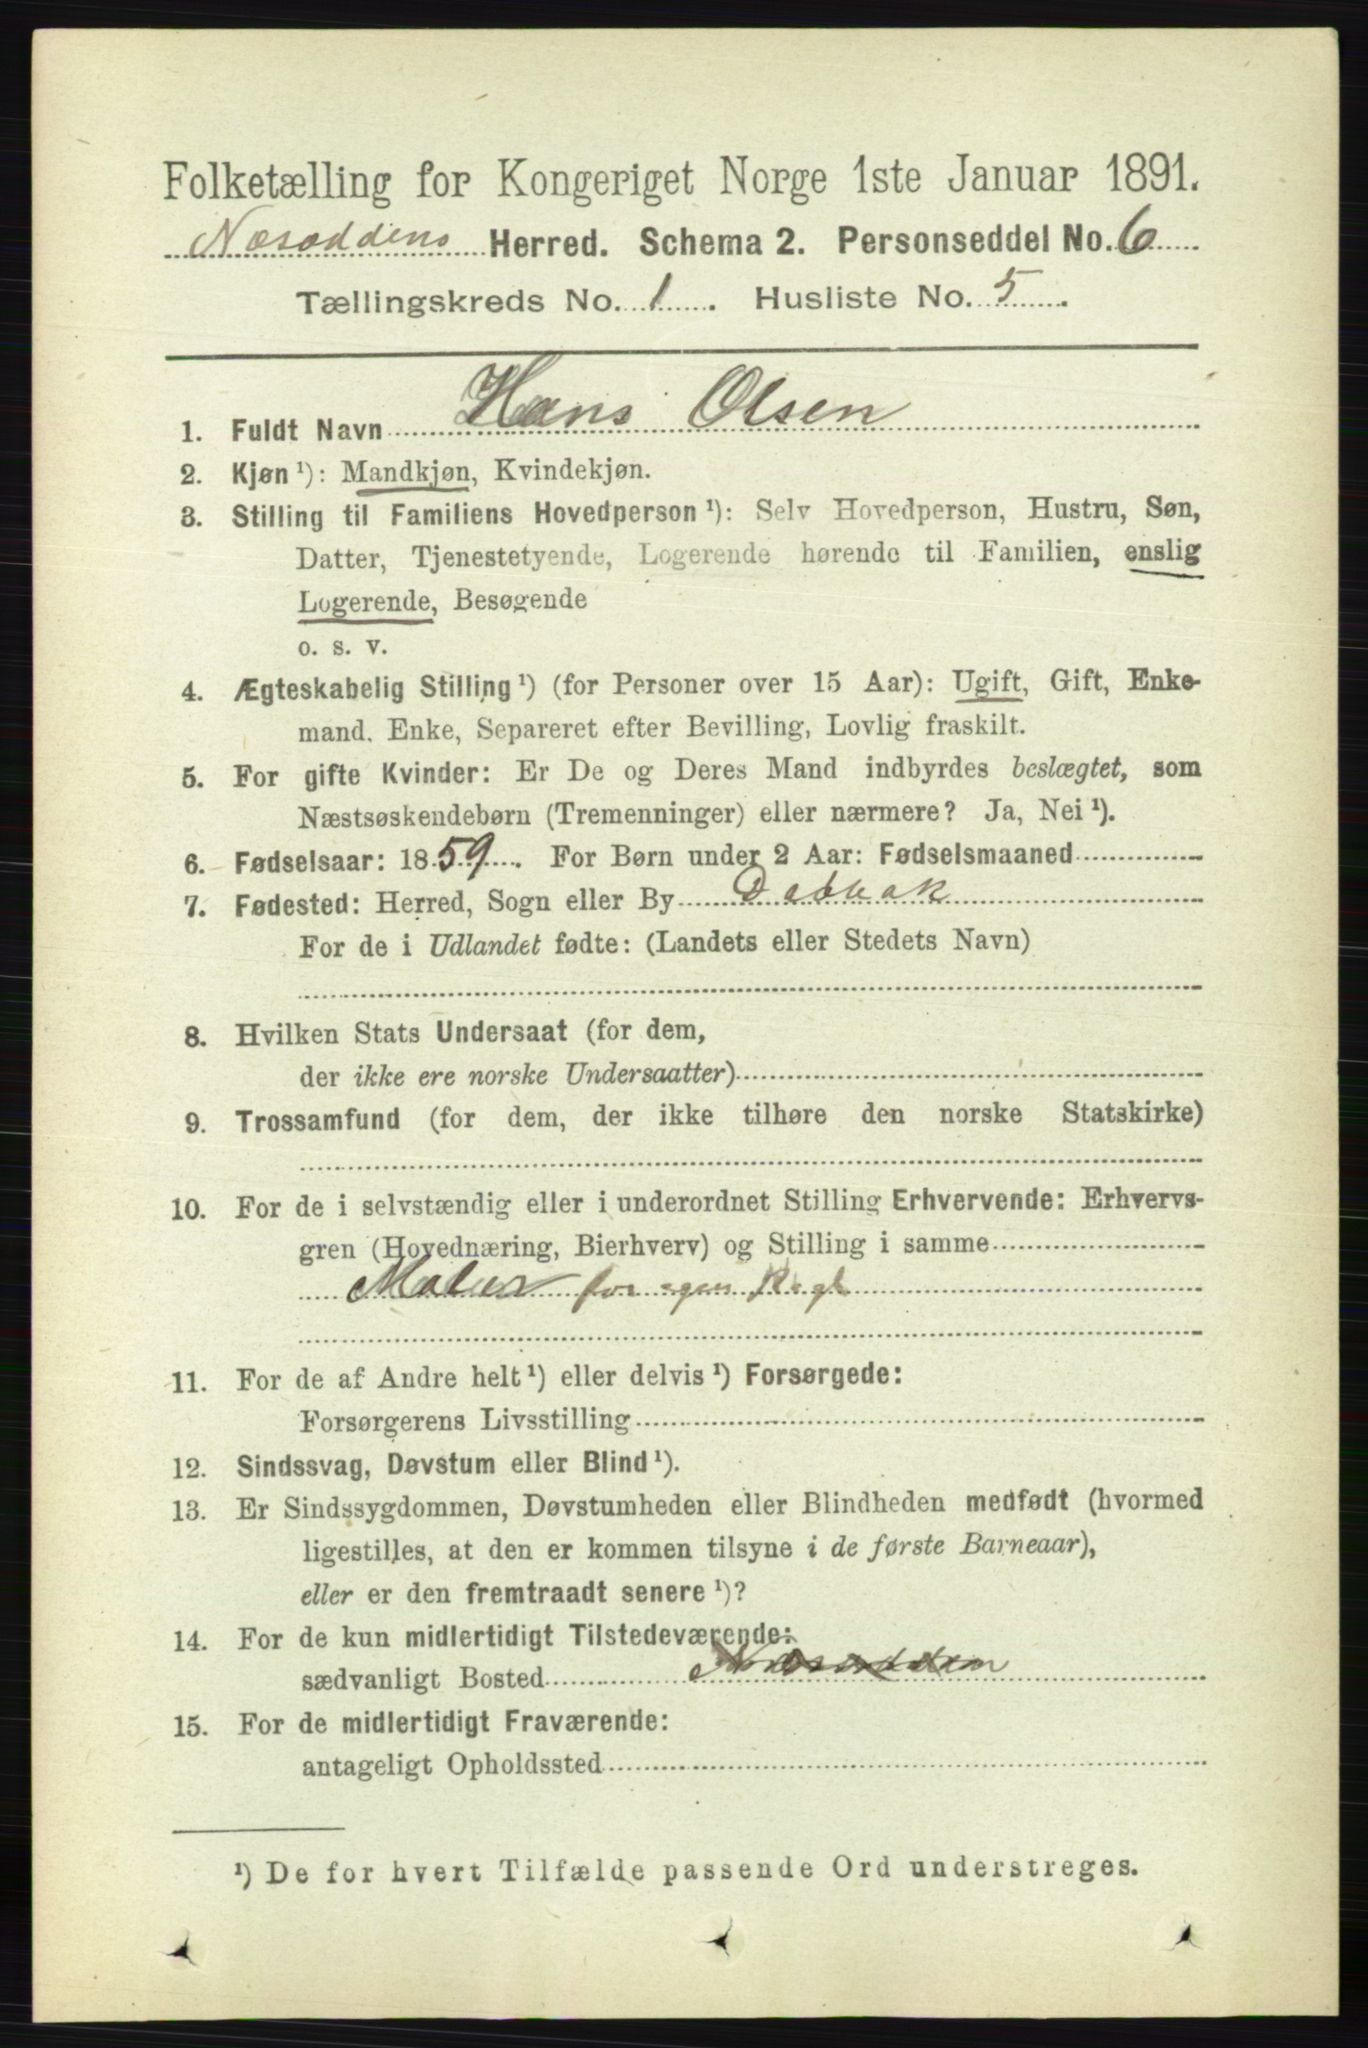 Folketælling for Kongeriget Norge 1ste Januar 1891.
Næsoddens Herred. Schema 2. Personseddel No. 6
Tællingskreds No. 1. Husliste No. 5.
1. Fuldt Navn Hans Olsen
2. Kjøn ¹): Mandkjøn, Kvindekjøn.
3. Stilling til Familiens Hovedperson ¹): Selv Hovedperson, Hustru, Søn,
Datter, Tjenestetyende, Logerende hørende til Familien, enslig
Logerende, Besøgende
o. s. v.
4. Ægteskabelig Stilling ¹) (for Personer over 15 Aar): Ugift, Gift, Enke-
mand. Enke, Separeret efter Bevilling, Lovlig fraskilt.
5. For gifte Kvinder: Er De og Deres Mand indbyrdes beslægtet, som
Næstsøskendebørn (Tremenninger) eller nærmere? Ja, Nei ¹).
6. Fødselsaar: 1859. For Børn under 2 Aar: Fødselsmaaned
7. Fødested: Herred, Sogn eller By
For de i Udlandet fødte: (Landets eller Stedets Navn)
8. Hvilken Stats Undersaat (for dem,
der ikke ere norske Undersaatter)
9. Trossamfund (for dem, der ikke tilhøre den norske Statskirke)
10. For de i selvstændig eller i underordnet Stilling Erhvervende: Erhvervs-
gren (Hovednæring, Bierhverv) og Stilling i samme
Maler for egen Regn
11. For de af Andre helt ¹) eller delvis ¹) Forsørgede:
Forsørgerens Livsstilling
12. Sindssvag, Døvstum eller Blind ¹).
13. Er Sindssygdommen, Døvstumheden eller Blindheden medfødt (hvormed
ligestilles, at den er kommen tilsyne i de første Barneaar),
eller er den fremtraadt senere ¹)?
14. For de kun midlertidigt Tilstedeværende:
sædvanligt Bosted Næsodden
15. For de midlertidigt Fraværende:
antageligt Opholdssted
¹) De for hvert Tilfælde passende Ord understreges.